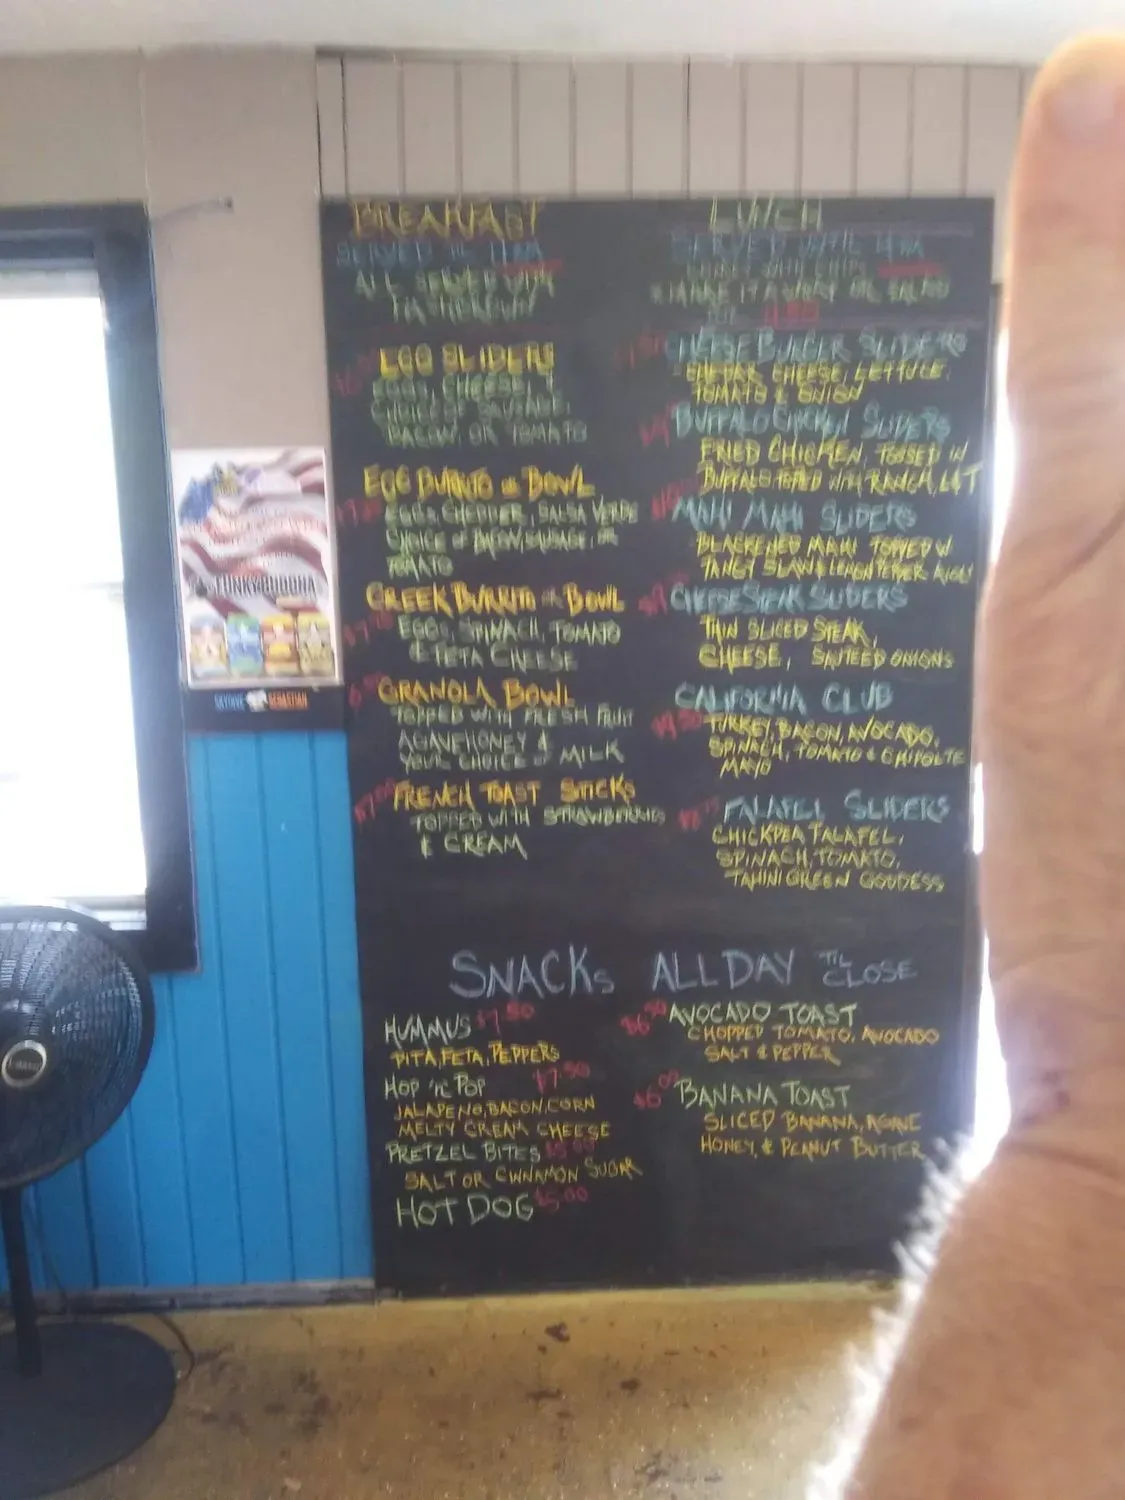 BREAKFAST
SERVED TIL 4PM
ALL SERVED WITH
EGG SLIDERS
EGGS, CHEESE, &
CHOICE OF SAUSAGE,
BACON, OR TOMATO
EGG BURRITO OR BOWL
EGGS, CHEDDER, SALSA VERDE
CHOICE OF BACON, SAUSAGE, OR
TOMATO
GREEK BURRITO OR BOWL
EGGS, SPINACH, TOMATO
& FETA CHEESE
GRANOLA BOWL
TOPPED WITH FRESH FRUIT
AGAVE HONEY &
YOUR CHOICE OF MILK
$7.00 FRENCH TOAST STICKS
TOPPED WITH STRAWBERRIES
& CREAM
LUNCH
SERVED UNTIL 4PM
WITH CHIPS
MAKE IT A WRAP OR SALAD
CHEESE BURGER SLIDERS
CHEDAR CHEESE, LETTUCE,
TOMATO & ONION
$9 BUFFALO CHICKEN SLIDERS
FRIED CHICKEN, TOSSED IN
BUFFALO TOPPED WITH RANCH, L&T
MAHI MAHI SLIDERS
BLACKENED MAHI TOPPED W
TANGY SLAW & LEMON PEPPER AIOLI
$9 CHEESESTEAK SLIDERS
THIN SLICED STEAK,
CHEESE, SAUTEED ONIONS
CALIFORNIA CLUB
$9.50 TURKEY, BACON, AVOCADO,
SPINACH, TOMATO & CHIPOLTE
MAYO
FALAFEL SLIDERS
CHICKPEA FALAFEL,
SPINACH, TOMATO,
TAHINI GREEN GODDESS
SNACKS ALL DAY TIL CLOSE
HUMMUS $7.50
PITA, FETA, PEPPERS
HOP 'N POP $7.50
JALAPENO, BACON, CORN
MELTY CREAM CHEESE
PRETZEL BITES $5.00
SALT OR CINNAMON SUGAR
HOT DOG $5.00
$6.50 AVOCADO TOAST
CHOPPED TOMATO, AVOCADO
SALT & PEPPER
$6.00 BANANA TOAST
SLICED BANANA, AGAVE
HONEY, & PEANUT BUTTER
FUNKY BUDDHA
SKYDIVE SEBASTIAN